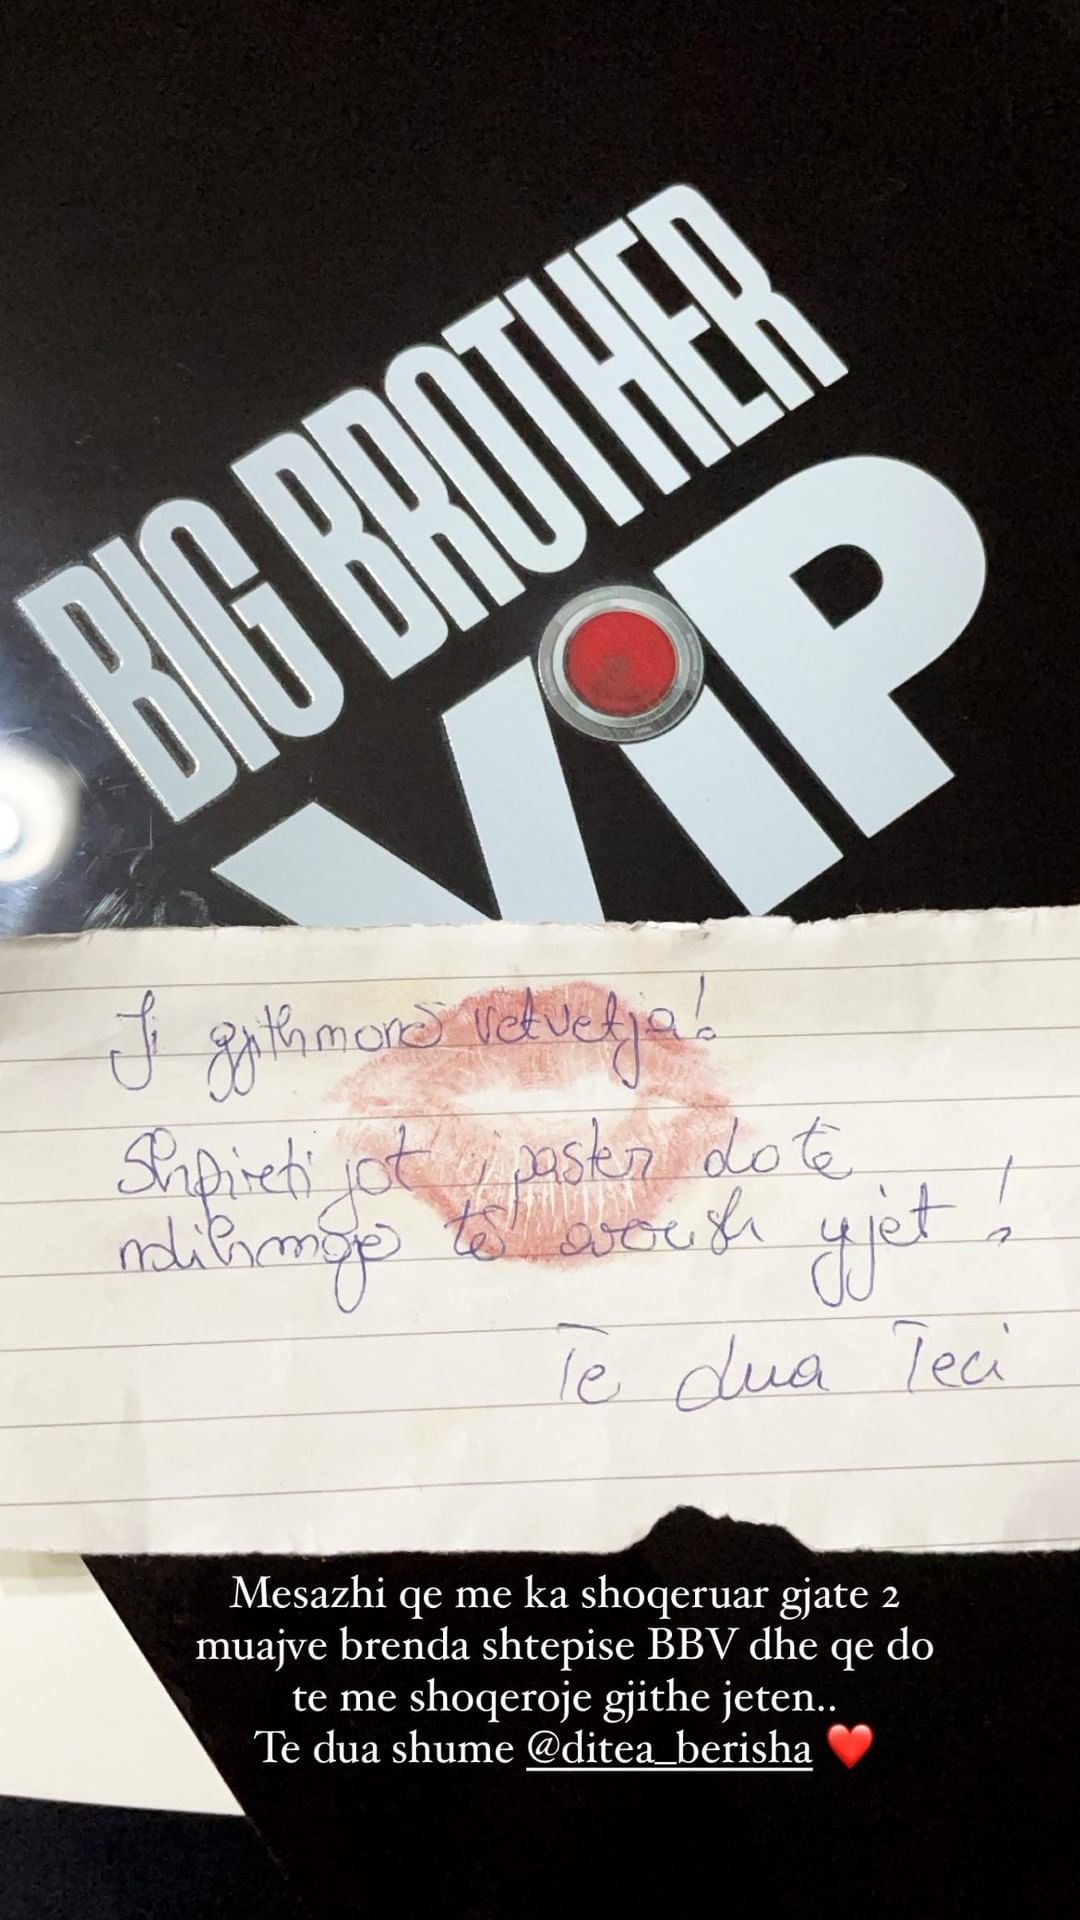 BIG BROTHER
VIP
Ji gjithmonë vetvetja!
Shpirti jot i paster do të
ndihmoje të arrish yjet!
Të dua Teci
Mesazhi qe me ka shoqeruar gjate 2
muajve brenda shtepise BBV dhe qe do
te me shoqeroje gjithe jeten..
Te dua shume @ditea_berisha ❤️